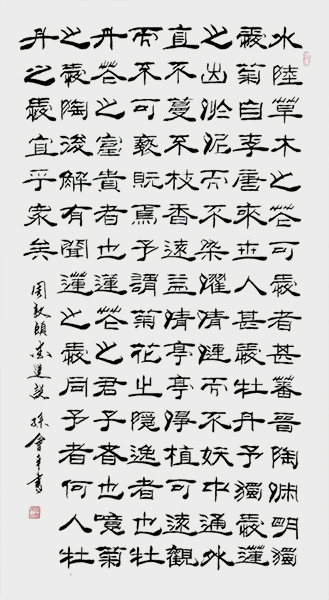 水陸草木之花可愛者甚蕃晉陶淵明獨
愛菊自李唐來世人甚愛牡丹予獨愛蓮
之出淤泥而不染濯清漣而不妖中通外
直不蔓不枝香遠益清亭亭淨植可遠觀
而不可褻玩焉予謂菊花之隱逸者也牡
丹花之富貴者也蓮花之君子者也噫菊
之愛陶後鮮有聞蓮之愛同予者何人牡
丹之愛宜乎眾矣
周敦頤愛蓮說 孫會年書